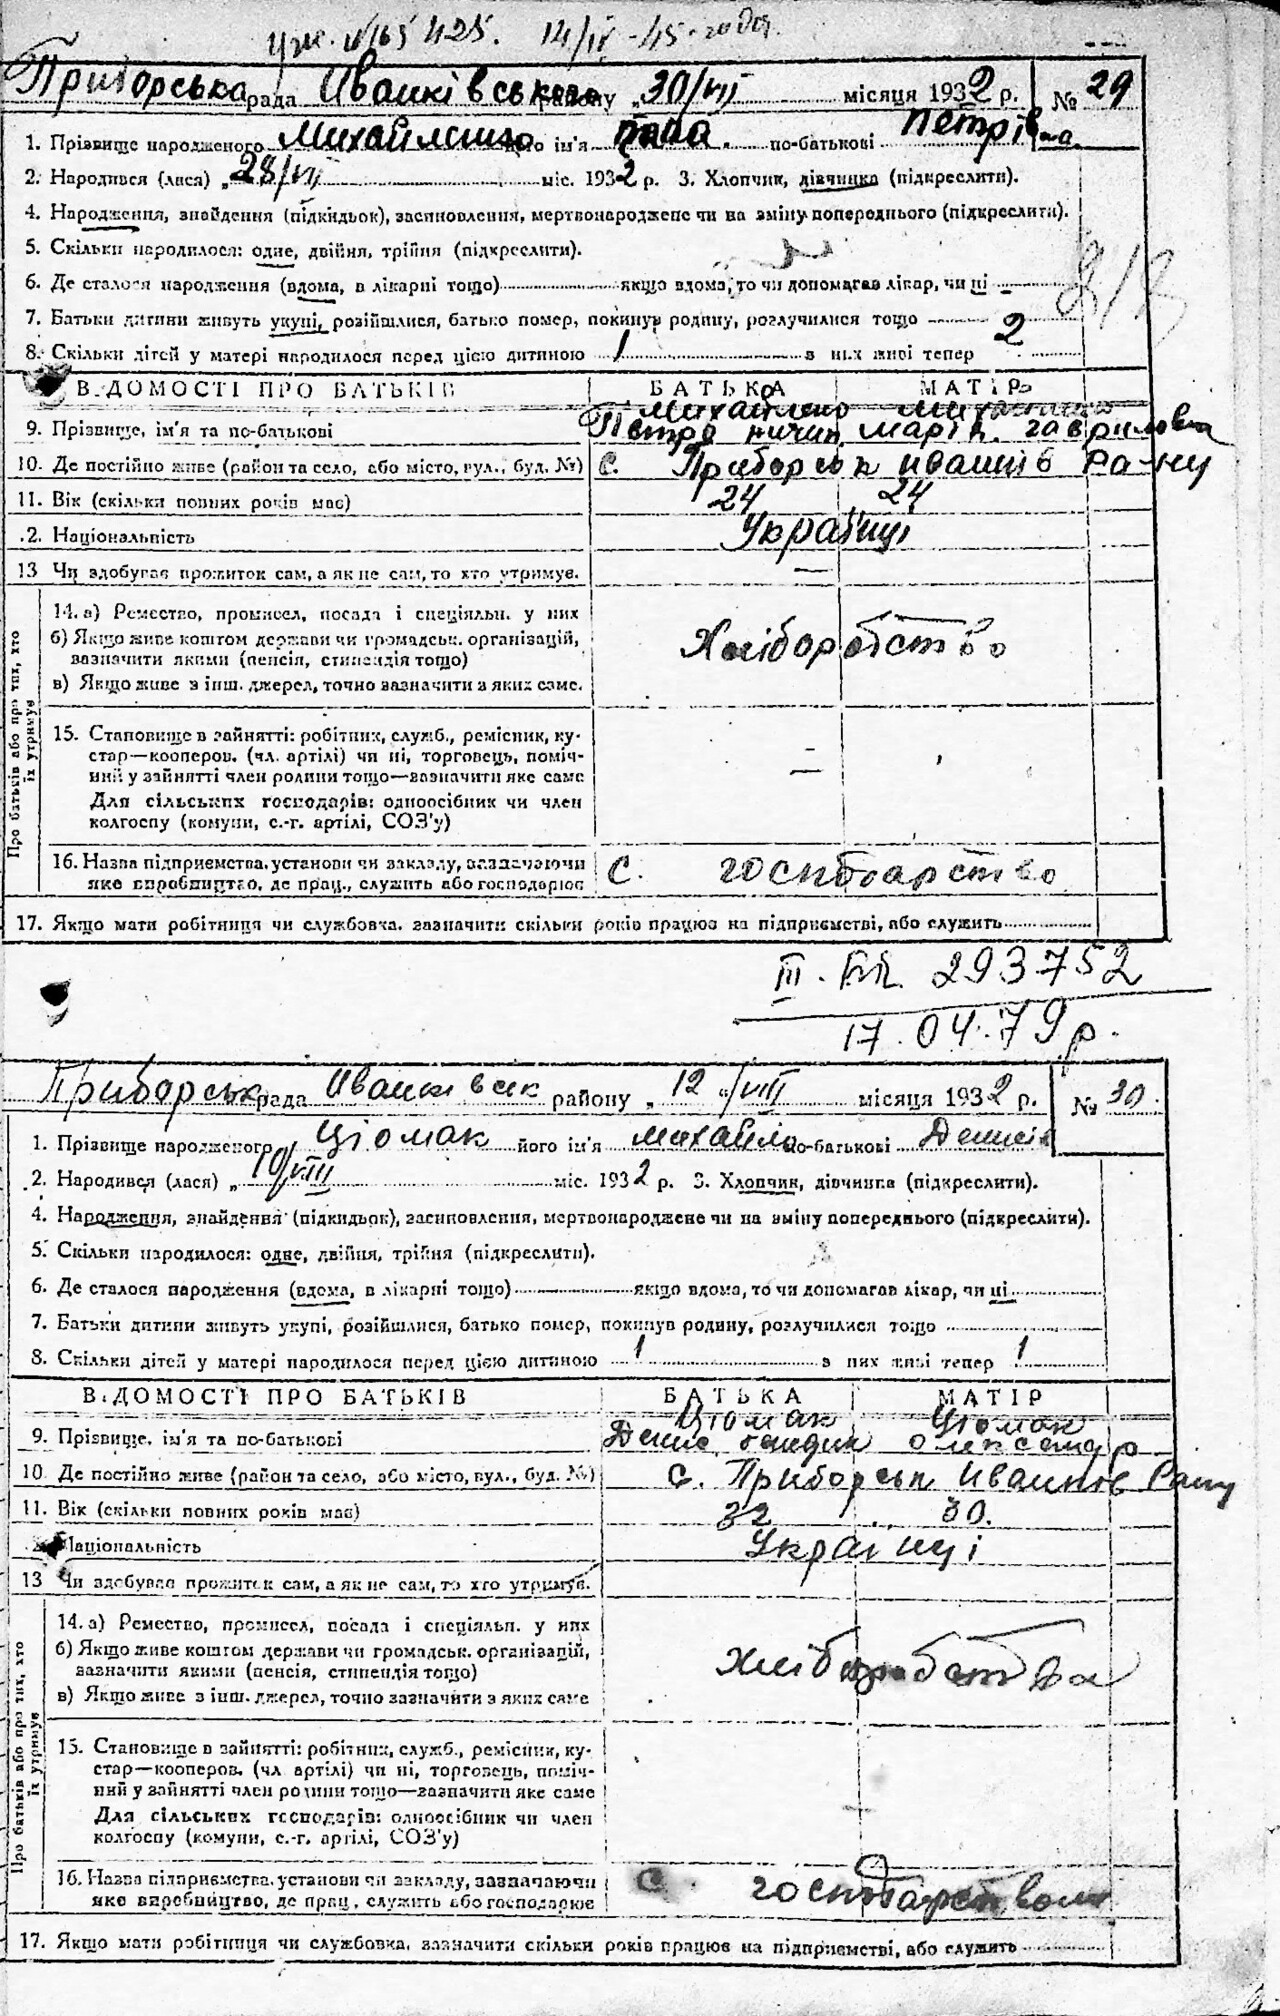 425. 14/IV-45-года
Приборська рада Иванківського району „30/VII місяця 1932 р. № 29
1. Прізвище народженого Михайленко його ім'я по-батькові Петрівна
2. Народився (лася) „28/VII міс. 1932 р. 3. Хлопчик, дівчинка (підкреслити).
4. Народження, знайдення (підкидьок), засиновлення, мертвонароджене чи на зміну попереднього (підкреслити).
5. Скільки народилося: одне, двійня, трійня (підкреслити).
6. Де сталося народження (вдома, в лікарні тощо) якщо вдома, то чи допомагав лікар, чи ні
7. Батьки дитини живуть укупі, розійшлися, батько помер, покинув родину, розлучилися тощо
8. Скільки дітей у матері народилося перед цією дитиною 1 з них живі тепер 2
ВІДОМОСТІ ПРО БАТЬКІВ БАТЬКА МАТІР
Михайленко Михайленко
9. Прізвище, ім'я та по-батькові Петро Марія Гавриловна
10. Де постійно живе (район та село, або місто, вул., буд. №) с. Приборськ Иванків Ра-ну
11. Вік (скільки повних років має) 24 24
12. Національність Українці
13 Чи здобуває прожиток сам, а як не сам, то хто утримує. —
Про батьків або про тих, хто їх утримує
14. а) Ремество, промисел, посада і спеціяльн. у них
б) Якщо живе коштом держави чи громадськ. організацій, Хліборобство
зазначити якими (пенсія, стипендія тощо)
в) Якщо живе з інш. джерел, точно зазначити з яких саме.
15. Становище в зайнятті: робітник, служб., ремісник, ку-
стар—кооперов. (чл. артілі) чи ні, торговець, поміч-
ний у зайнятті член родини тощо—зазначити яке саме —
Для сільських господарів: одноосібник чи член
колгоспу (комуни, с.-г. артілі, СОЗ'у)
16. Назва підприємства, установи чи закладу, зазначаючи С. господарство
яке виробництво, де прац., служить або господарює
17. Якщо мати робітниця чи службовка, зазначити скільки років працює на підприємстві, або служить
293752
17.04.79р.
Приборськ рада Иванківськ району „12 „/VIII місяця 1932 р. № 30.
1. Прізвище народженого Ціомак його ім'я Михайло по-батькові Денисів
2. Народився (лася) „10/VIII міс. 1932 р. 3. Хлопчик, дівчинка (підкреслити).
4. Народження, знайдення (підкидьок), засиновлення, мертвонароджене чи на зміну попереднього (підкреслити).
5. Скільки народилося: одне, двійня, трійня (підкреслити).
6. Де сталося народження (вдома, в лікарні тощо) якщо вдома, то чи допомагав лікар, чи ні
7. Батьки дитини живуть укупі, розійшлися, батько помер, покинув родину, розлучилися тощо
8. Скільки дітей у матері народилося перед цією дитиною 1 з них живі тепер 1
ВІДОМОСТІ ПРО БАТЬКІВ БАТЬКА МАТІР
Ціомак Ціомак
9. Прізвище, ім'я та по-батькові Денис Олександр
10. Де постійно живе (район та село, або місто, вул., буд. №) с. Приборськ Иванків Рану
11. Вік (скільки повних років має) 32 30.
Національність Українці
13 Чи здобуває прожиток сам, а як не сам, то хто утримує.
Про батьків або про тих, хто їх утримує
14. а) Ремество, промисел, посада і спеціяльн. у них
б) Якщо живе коштом держави чи громадськ. організацій, хліборобства
зазначити якими (пенсія, стипендія тощо)
в) Якщо живе з інш. джерел, точно зазначити з яких саме
15. Становище в зайнятті: робітник, служб., ремісник, ку-
стар—кооперов. (чл. артілі) чи ні, торговець, поміч-
ний у зайнятті член родини тощо—зазначити яке саме
Для сільських господарів: одноосібник чи член
колгоспу (комуни, с.-г. артілі, СОЗ'у)
16. Назва підприємства, установи чи закладу, зазначаючи С. господарством
яке виробництво, де прац., служить або господарює
17. Якщо мати робітниця чи службовка, зазначити скільки років працює на підприємстві, або служить